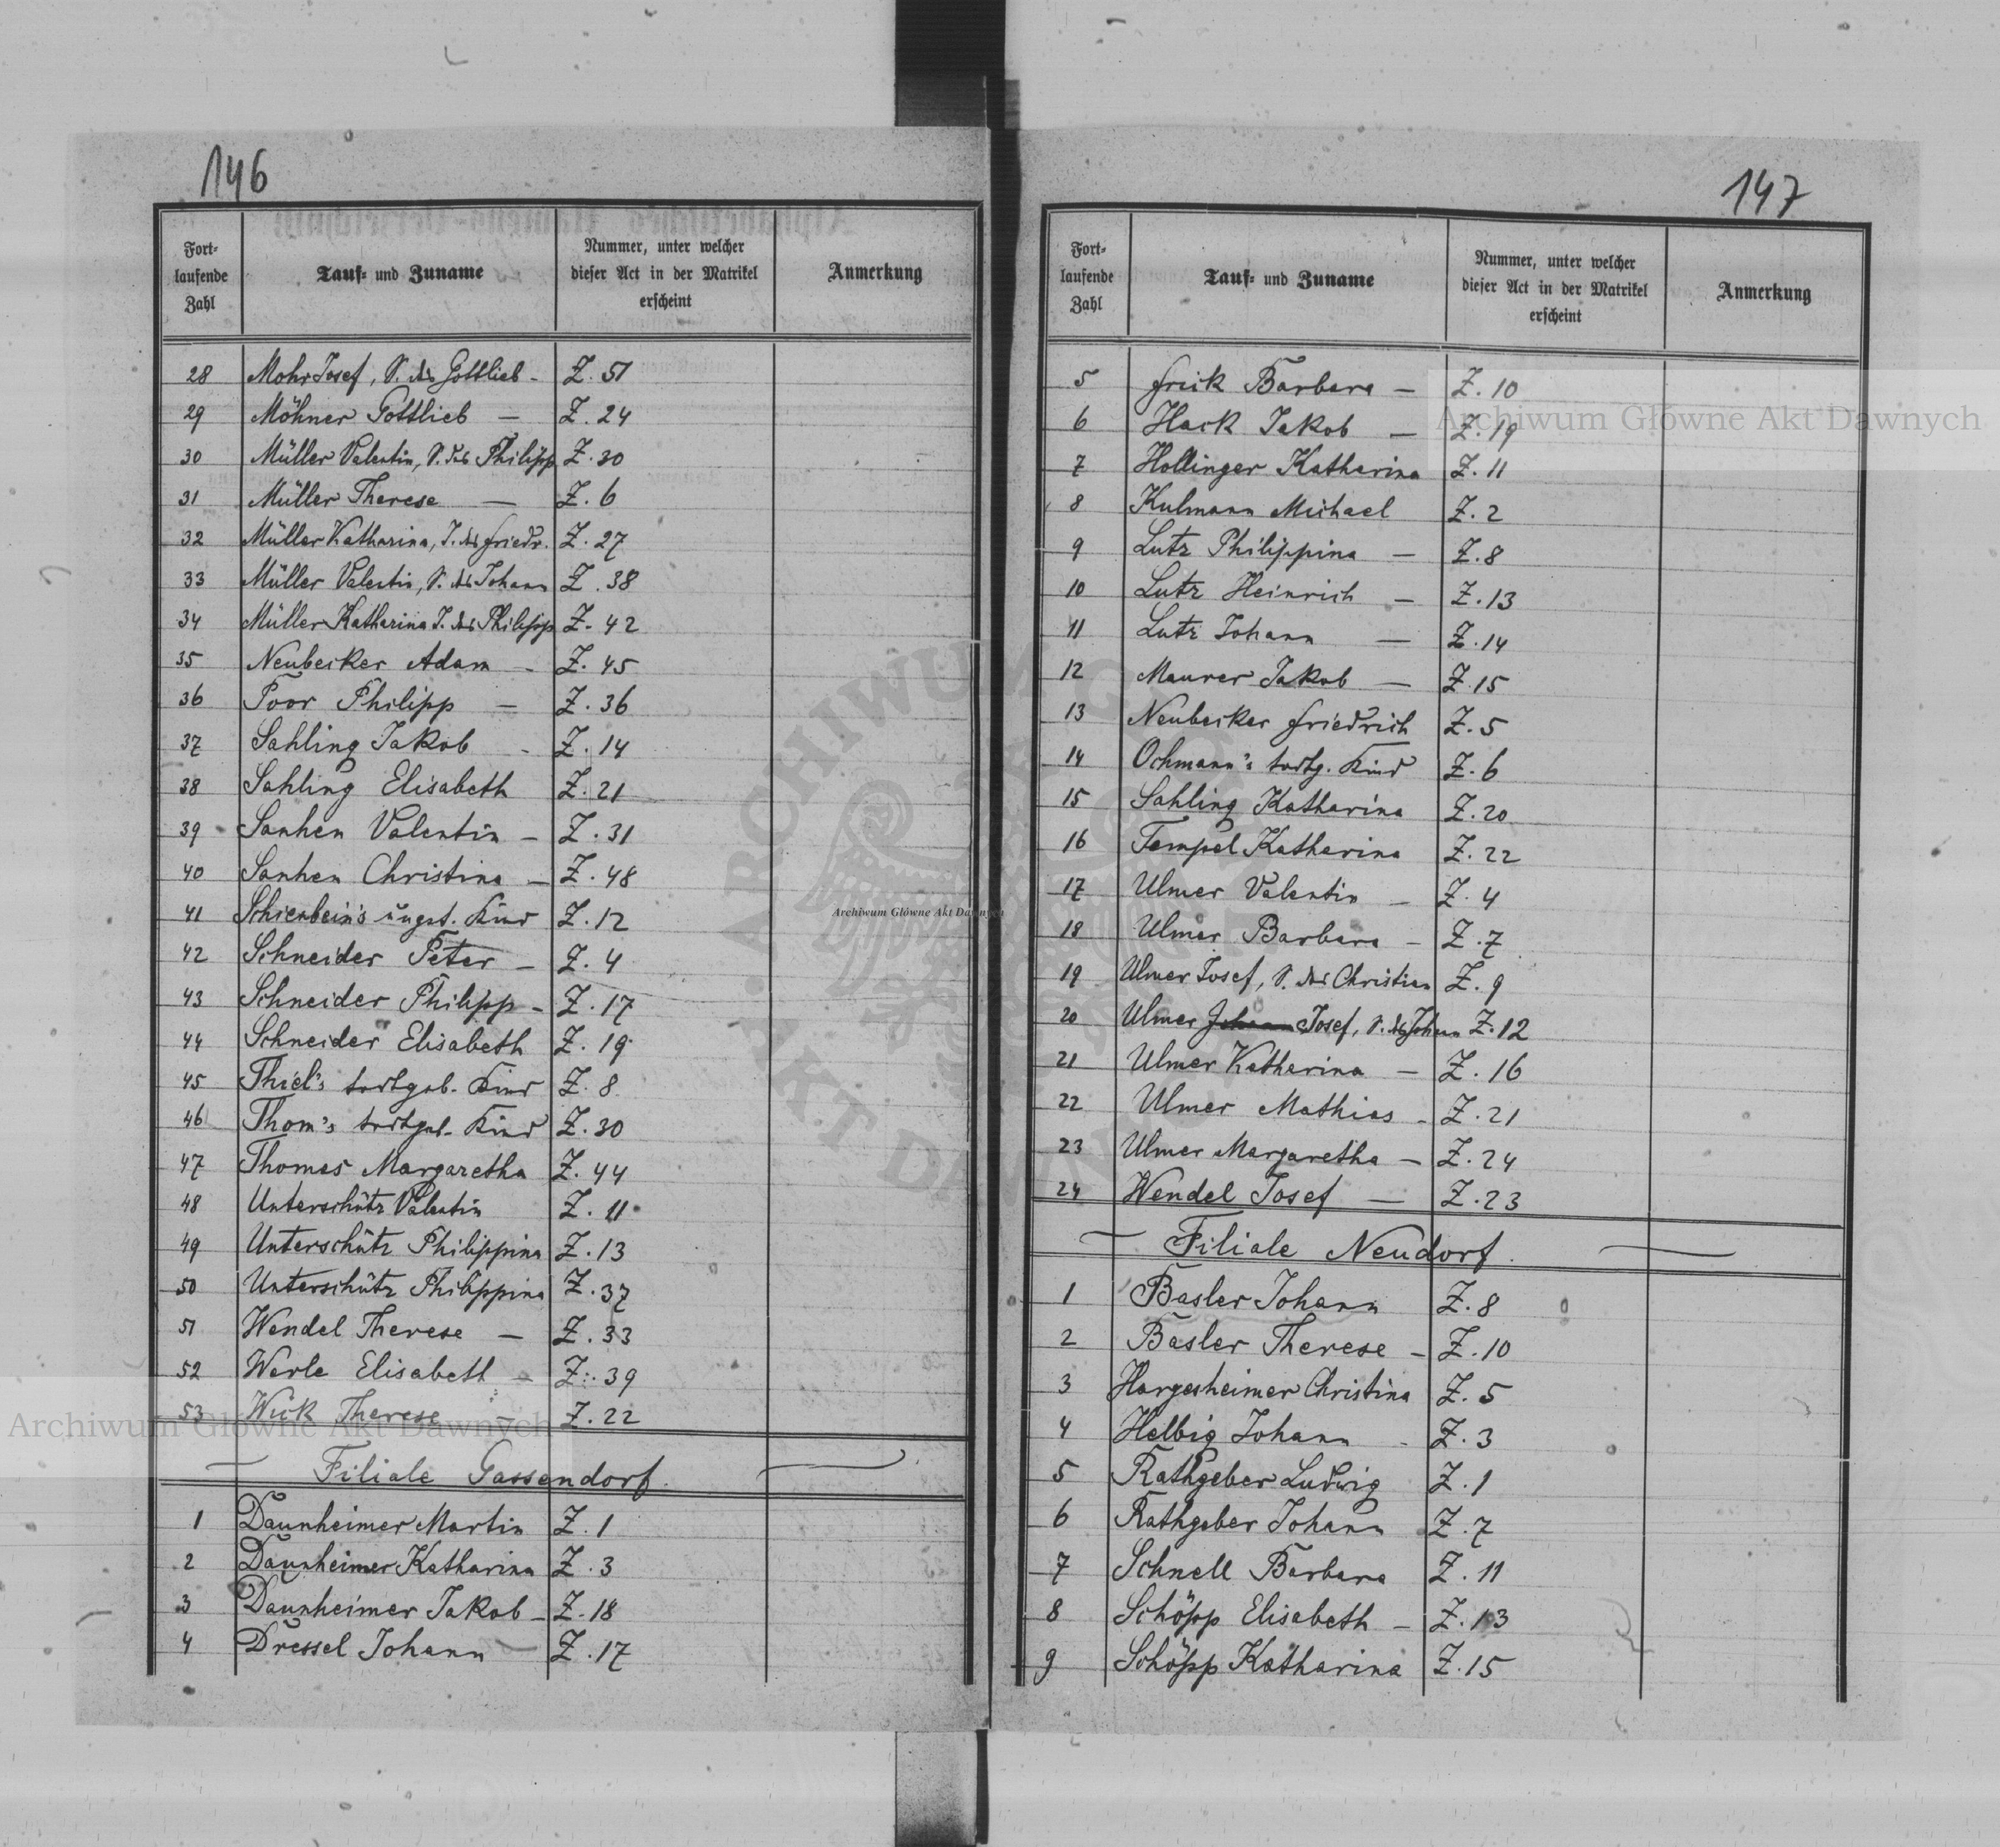 146
Fort-
laufende
Zahl
Tauf- und Zuname
Nummer, unter welcher
dieser Act in der Matrikel
erscheint
Anmerkung
28 Mohr Josef, S. des Gottlieb - Z. 51
29 Möhner Gottlieb — Z. 24
30 Müller Valentin, S. des Philipp Z. 30
31 Müller Therese — Z. 6
32 Müller Katharina, T. des Friedr. Z. 27
33 Müller Valentin, S. des Johann Z. 38
34 Müller Katharina T. des Philipp Z. 42
35 Neubecker Adam - Z. 45
36 Poor Philipp — Z. 36
37 Sahling Jakob - Z. 14
38 Sahling Elisabeth Z. 21
39 Sanhen Valentin — Z. 31
40 Sanhen Christina — Z. 48
41 Schienbein's ungt. Kind Z. 12
42 Schneider Peter — Z. 4
43 Schneider Philipp - Z. 17
44 Schneider Elisabeth Z. 19
45 Thiel's todtgeb. Kind Z. 8
46 Thom's todtgeb. Kind Z. 30
47 Thomas Margaretha Z. 44
48 Unterschütz Valentin Z. 11
49 Unterschütz Philippina Z. 13
50 Unterschütz Philippina Z. 37
51 Wendel Therese — Z. 33
52 Werle Elisabeth — Z. 39
53 Wick Therese — Z. 22
Filiale Gassendorf.
1 Daunheimer Martin Z. 1
2 Daunheimer Katharina Z. 3
3 Daunheimer Jakob - Z. 18
4 Dressel Johann — Z. 17
147
Fort-
laufende
Zahl
Tauf- und Zuname
Nummer, unter welcher
dieser Act in der Matrikel
erscheint
Anmerkung
5 Frick Barbara — Z. 10
6 Hack Jakob — Z. 19
7 Hollinger Katharina Z. 11
8 Kulmann Michael Z. 2
9 Lutz Philippina — Z. 8
10 Lutz Heinrich — Z. 13
11 Lutz Johann — Z. 14
12 Maurer Jakob — Z. 15
13 Neubecker Friedrich Z. 5
14 Ochmann's todtg. Kind Z. 6
15 Sahling Katharina Z. 20
16 Tempel Katharina Z. 22
17 Ulmer Valentin — Z. 4
18 Ulmer Barbara — Z. 7
19 Ulmer Josef, S. des Christian Z. 9
20 Ulmer Johann Josef, S. des Johann Z. 12
21 Ulmer Katharina — Z. 16
22 Ulmer Mathias - Z. 21
23 Ulmer Margaretha — Z. 24
24 Wendel Josef — Z. 23
Filiale Neudorf.
1 Basler Johann Z. 8
2 Basler Therese — Z. 10
3 Hargesheimer Christina Z. 5
4 Helbig Johann - Z. 3
5 Rathgeber Ludwig Z. 1
6 Rathgeber Johann Z. 7
7 Schnell Barbara Z. 11
8 Schöpp Elisabeth — Z. 13
9 Schöpp Katharina Z. 15
Archiwum Główne Akt Dawnych
Archiwum Główne Akt Dawnych
Archiwum Główne Akt Dawnych